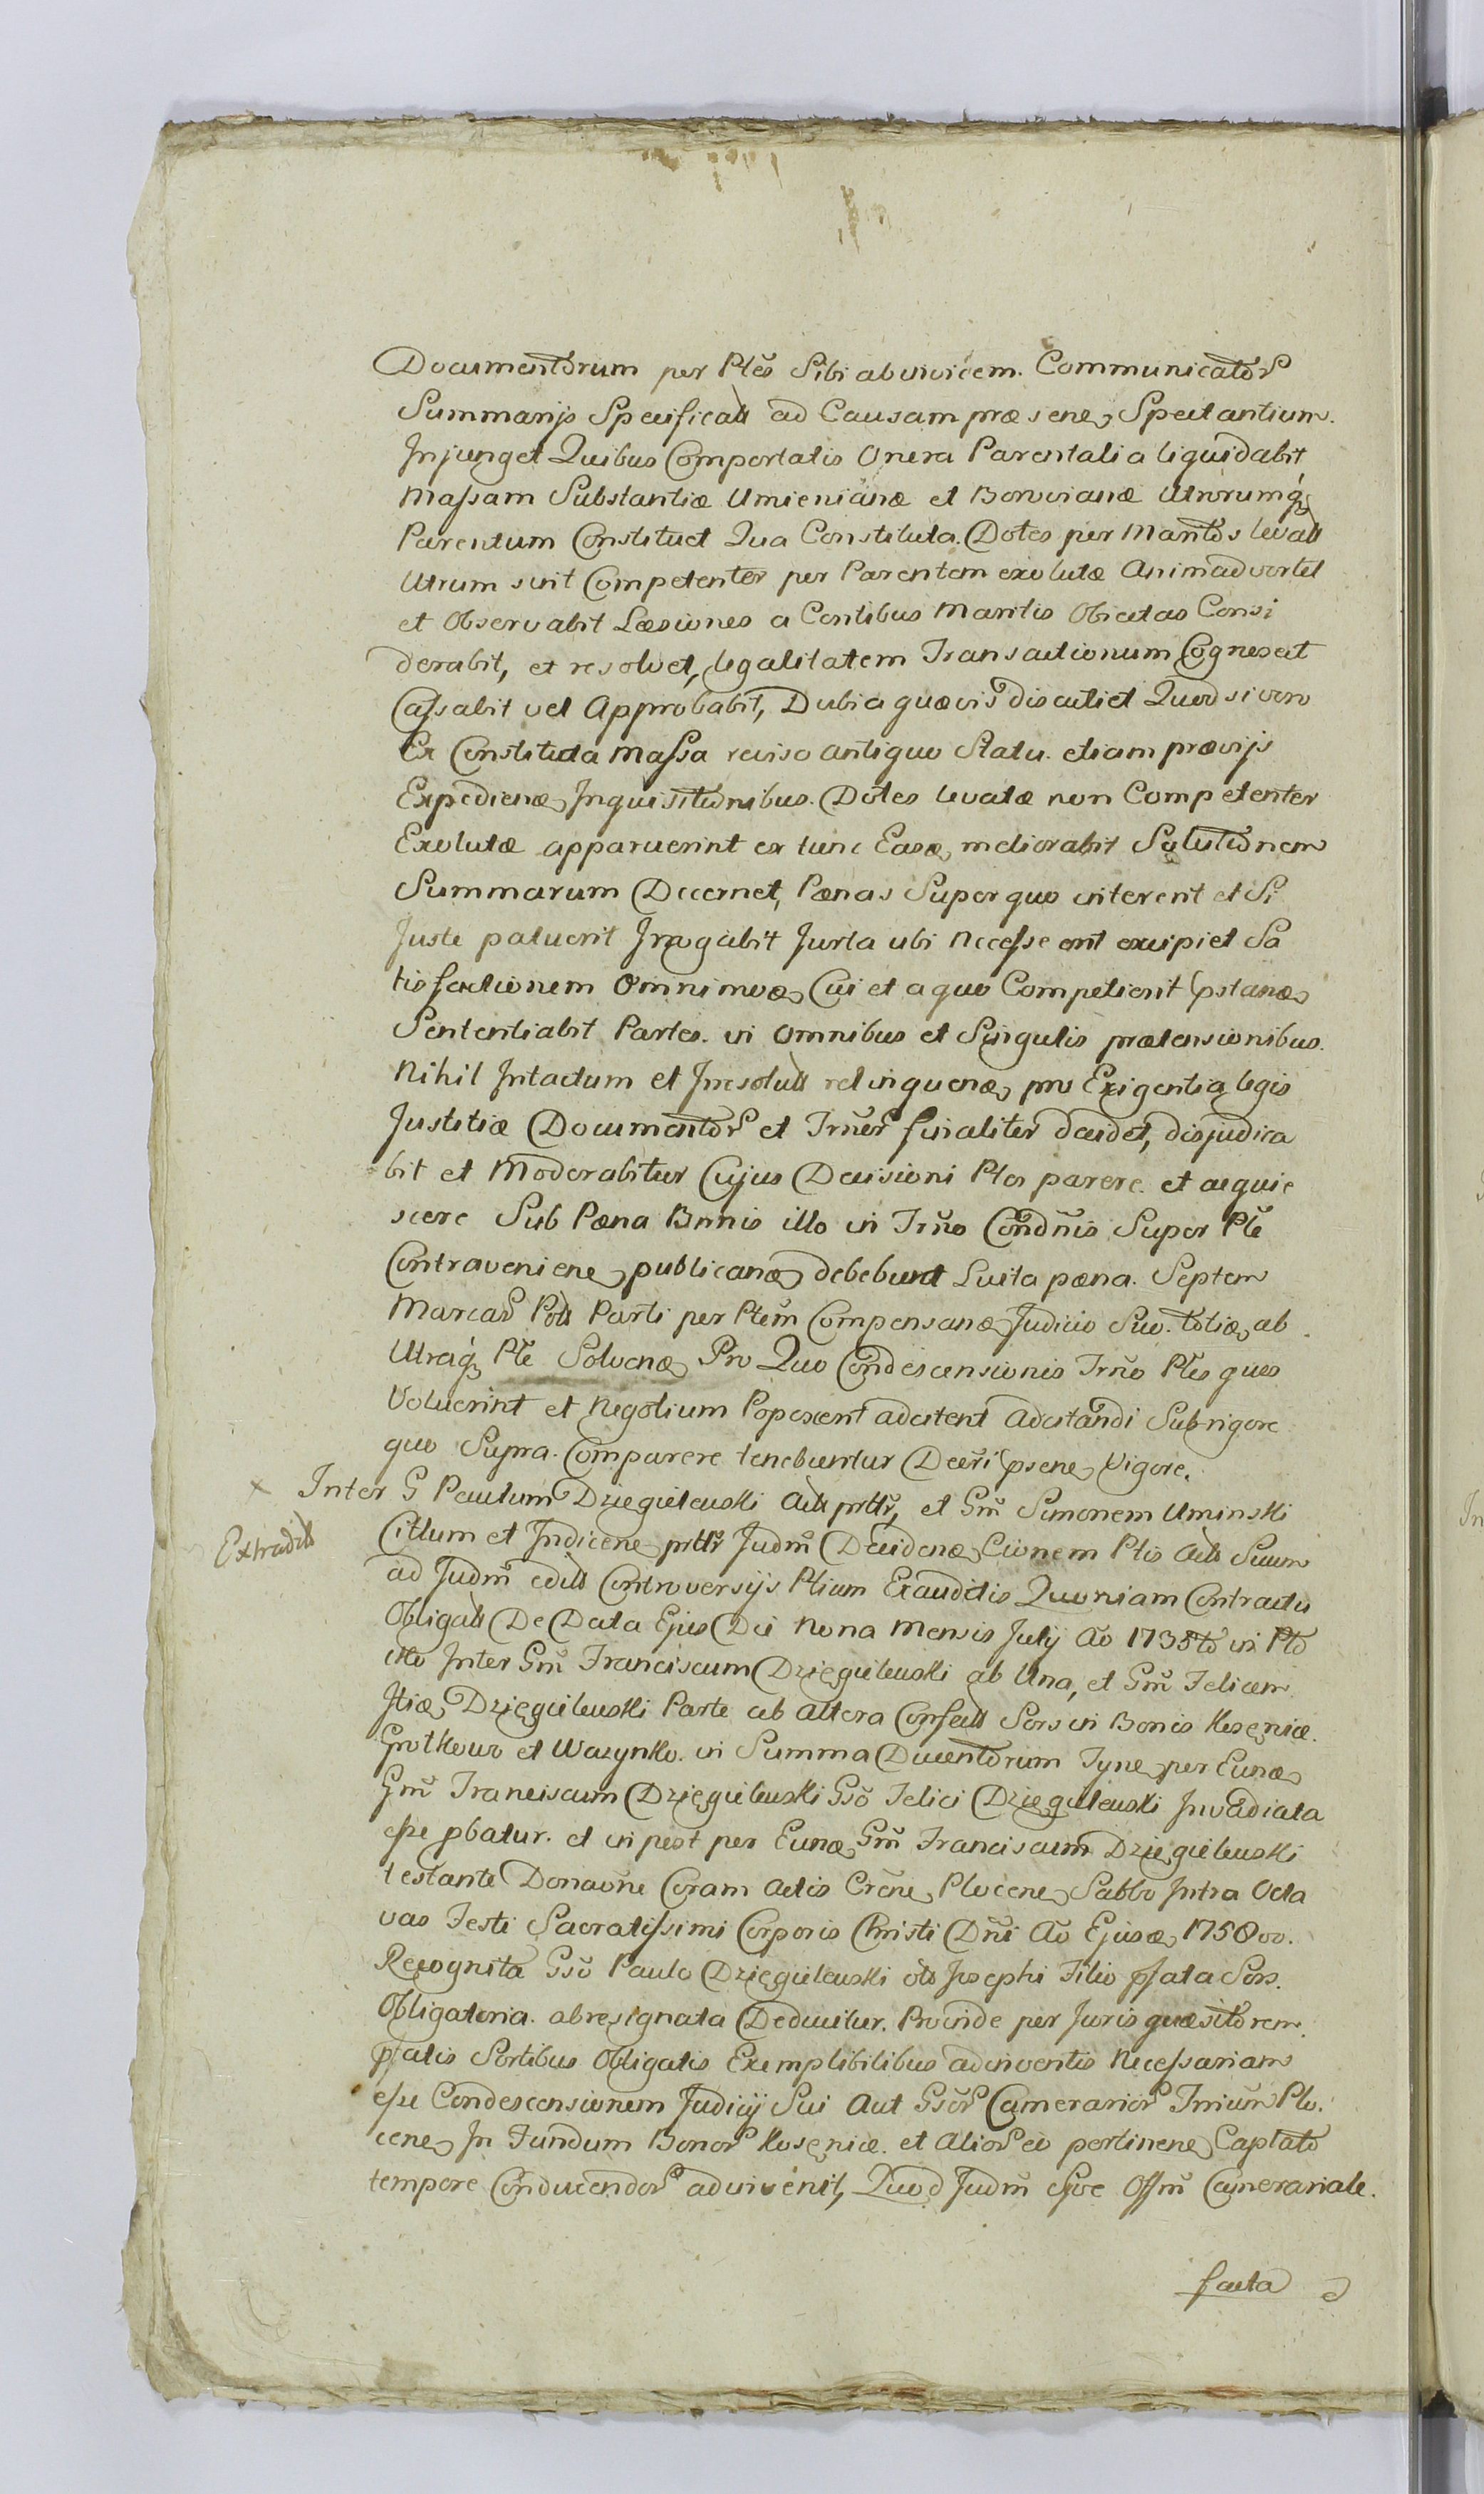 Documentorum per Ptes Sibi ab invicem Communicator
Summarijs Specificatt ad Causam præsene Spectantium
Injunget Quibus Comportatis Onera Parentalia liquidabit
Massam Substantiæ Umienianæ et Borovianæ Utrorumq
Parentum Constituet Qua Constituta Dotes per Maritos levatt
Utrum sint Competenter per Parentem exolutæ Animadvertet
et Observabit Læsiones a Contibus Maritis Obiectas Consi
derabit, et resolvet, legalitatem Transactionum Cognoscet
Cassabit vel Approbabit, Dubia quævis discutiet Quod si vero
Ex Constituta Massa reviso antiquo Statu etiam prævijs
Expedienæ Inquisitionibus Dotes levatæ non Competenter
Exolutæ apparuerint ex tunc Easæ meliorabit Solutionem
Summarum Decernet, Pænas Super quo interent et Si
Juste patuerit Irrogabit Jurta ubi Necesse erit excipiet Sa
tisfactionem Omnimodæ Cui et a quo Competierit pstanæ
Sententiabit Partes in Omnibus et Singulis prætensionibus
Nihil Intactum et Irresolutt relinquenæ pro Exigentia legis
Justitiæ Documentor et Irner finaliter decidet, disjudica
bit et Moderabitur Cujus Decisioni Ptes parere et acquie
scere Sub Pæna Bnnis illo in Trno Condnis Super Pte
Contraveniene publicanæ debebunt Luita pæna Septem
Marcar Poll Parti per Ptem Compensanæ Judicio Suo totiæ ab
Utraq Pte Solvenæ Pro Quo Condescensionis Trno Ptes quos
Voluerint et Negotium Poposcerit adcitent Adcitandi Sub rigore
quo Supra Comparere tenebuntur Decri psene Vigore.
Inter G Paulum Dzięgielewski Actt prttr, et Gm Simonem Uminski
Extraditt
Cittum et Indicene prttr Judm Decidenæ Cionem Ptis Actt Suum
ad Judm editt Controversijs Ptium Exauditis Quoniam Contractu
Obligatt De Data Ejus Die Nona Mensis July Ao 1735to in Pto
cito Inter Gm Franciscum Dzięgielewski ab Una, et Gm Felicem
Itiæ Dzięgielewski Parte ab altera Confectt Sors in Bonis Kosęnice
Grotkowo et Wazynko in Summa Ducentorum Tyne per Eunæ
Gm Franciscum Dzięgielewski Gso Felici Dzięgielewski Invadiata
esse pbatur et in post per Eunæ Gm Franciscum Dzięgielewski
testante Donaone Coram Actis Crene Plocene Sabbo Intra Octa
vas Festi Sacratissimi Corporis Christi Dni Ao Ejusæ 1758vo.
Recognita Gso Paulo Dzięgielewski olt Josephi Filio pfata Sors
Obligatoria abresignata Deducitur. Proinde per Juris quæsitorem
pfatis Sortibus Obligatis Exemptibilibus adinventis Necessariam
esse Condescensionem Judicij Sui Aut Gsor Camerarior Trrium Plo
cene In Fundum Bonor Kosęnice et Alior eo pertinene Captato
tempore Conducendor adinvenit, Quod Judm sive Offm Camerariale
facta